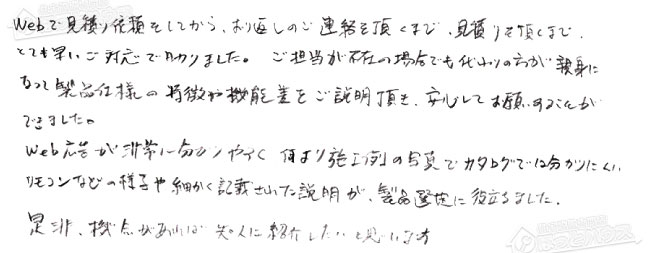 Webで見積り依頼をしてから、折り返しのご連絡を頂くまで、見積りを頂くまで、
とても早いご対応で助かりました。ご担当が不在の場合でも代わりの方が親身に
なって製品仕様の特徴や機能差をご説明頂き、安心してお願いすることが
できました。
Web広告が非常に分かりやすく 何より施工例の写真でカタログでは分かりにくい、
リモコンなどの様子や細かく記載された説明が、製品選定に役立ちました。
是非、機会があれば知人に紹介したいと思います